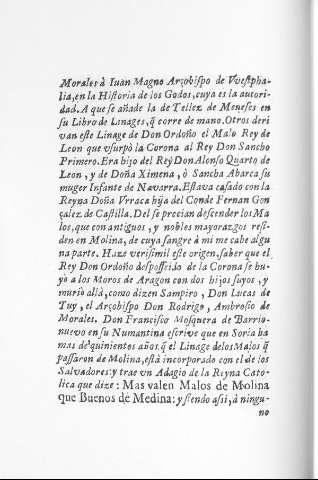 Morales à Iuan Magno Arçobiſpo de Vveſtpha-
lia, en la Hiſtoria de los Godos, cuya es la autori-
dad. A que ſe añade la de Tellez de Meneſes en
ſu Libro de Linages, q̃ corre de mano. Otros deri
van eſte Linage de Don Ordoño el Malo Rey de
Leon que vſurpò la Corona al Rey Don Sancho
Primero. Era hijo del Rey Don Alonſo Quarto de
Leon, y de Doña Ximena, ò Sancha Abarca ſu
muger Infante de Navarra. Eſtava caſado con la
Reyna Doña Vrraca hija del Conde Fernan Gon
çalez de Caſtilla. Del ſe precian deſcender los Ma
los, que con antiguos, y nobles mayorazgos reſi-
den en Molina, de cuya ſangre à mi me cabe algu
na parte. Haze veriſimil eſte origen, ſaber que el
Rey Don Ordoño deſpoſſeido de la Corona ſe hu-
yò a los Moros de Aragon con dos hijos ſuyos, y
muriò allà, como dizen Sampiro, Don Lucas de
Tuy, el Arçobiſpo Don Rodrigo, Ambroſio de
Morales. Don Franciſco Moſquera de Barrio-
nuevo en ſu Numantina eſcrive que en Soria ha
mas de quinientos años q̃ el Linage de los Malos q̃
paſſaron de Molina, eſtà incorporado con el de los
Salvadores: y trae vn Adagio de la Reyna Cato-
lica que dize: Mas valen Malos de Molina
que Buenos de Medina: y ſiendo aſsi, à ningu-
no